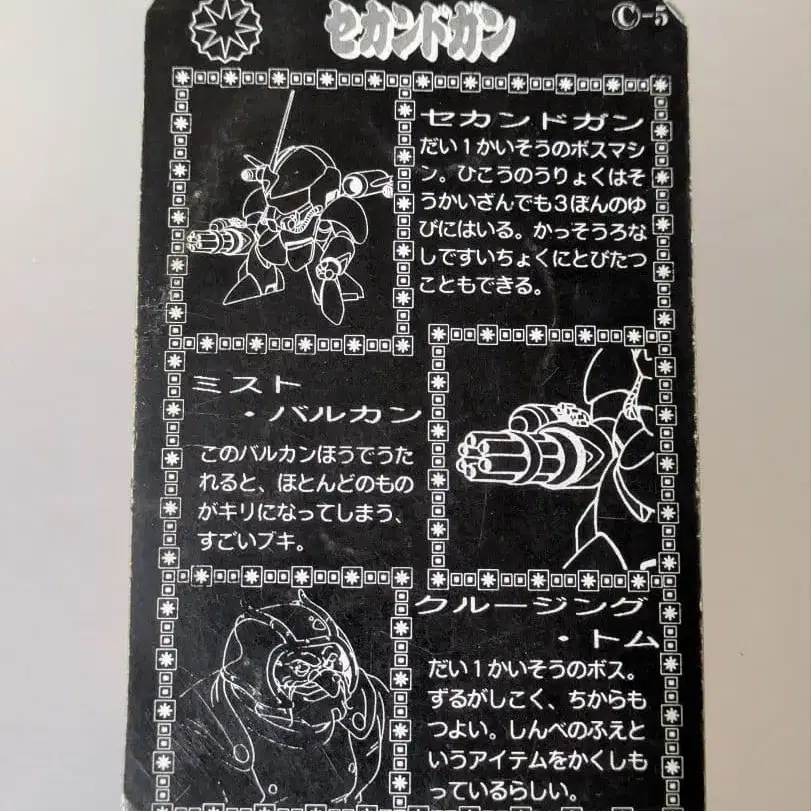 セカンドガン
C-5
セカンドガン
だい1かいそうのボスマシ
ン。ひこうのうりょくはそ
うかいざんでも3ぼんのゆ
びにはいる。かっそうろな
しですいちょくにとびたつ
こともできる。
ミスト
・バルカン
このバルカンほうでうた
れると、ほとんどのもの
がキリになってしまう、
すごいブキ。
クルージング
・トム
だい1かいそうのボス。
ずるがしこく、ちからも
つよい。しんべのふえと
いうアイテムをかくしも
っているらしい。